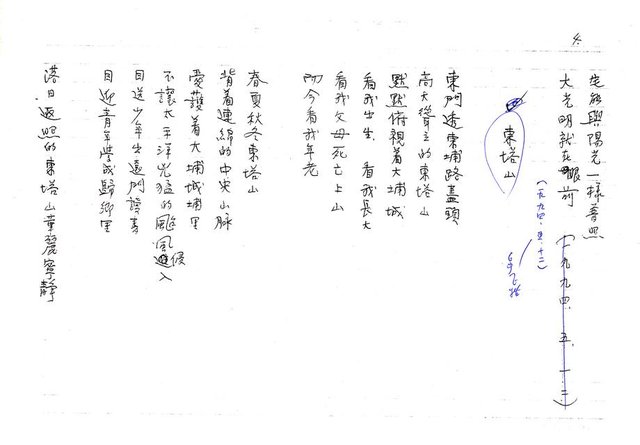 4.
生能與陽光一樣普照
大光明就在眼前(一九九四.五.一二)
(一九九四.五.十二)
東塔山
東門透東埔路盡頭
高大聳立的東塔山
默默俯視着大埔城
看我出生、看我長大
看我父母死亡上山
而今看我年老
春夏秋冬東塔山
背着連綿的中央山脈
愛護着大埔城埔里
不讓太平洋光猛的颱風侵入
目送少年出遠門讀書
目迎青年學成歸鄉里
落日返照的東塔山華麗寧靜